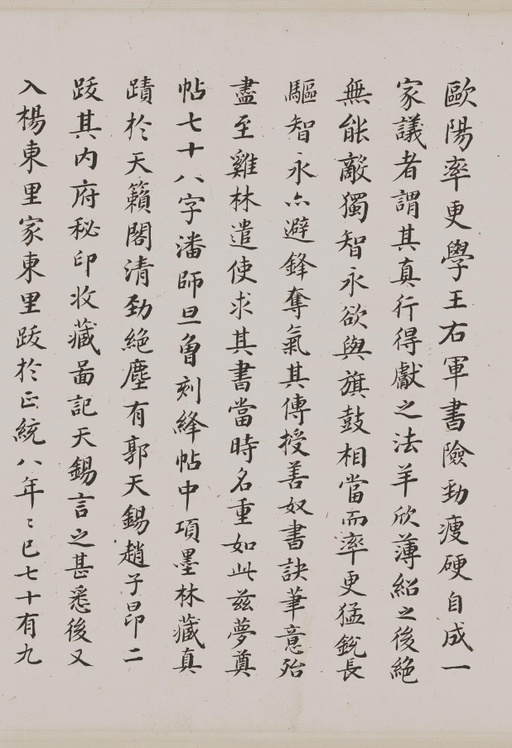 歐陽率更學王右軍書險勁瘦硬自成一
家議者謂其真行得獻之法羊欣薄紹之後絕
無能敵獨智永欲與旗鼓相當而率更猛銳長
驅智永亦避鋒奪氣其傳授善奴書訣筆意殆
盡至雞林遣使求其書當時名重如此茲夢奠
帖七十八字潘師旦曾刻絳帖中項墨林藏真
蹟於天籟閣清勁絕塵有郭天錫趙子昂二
跋其內府秘印收藏啚記天錫言之甚悉後又
入楊東里家東里跋於正統八年〻已七十有九